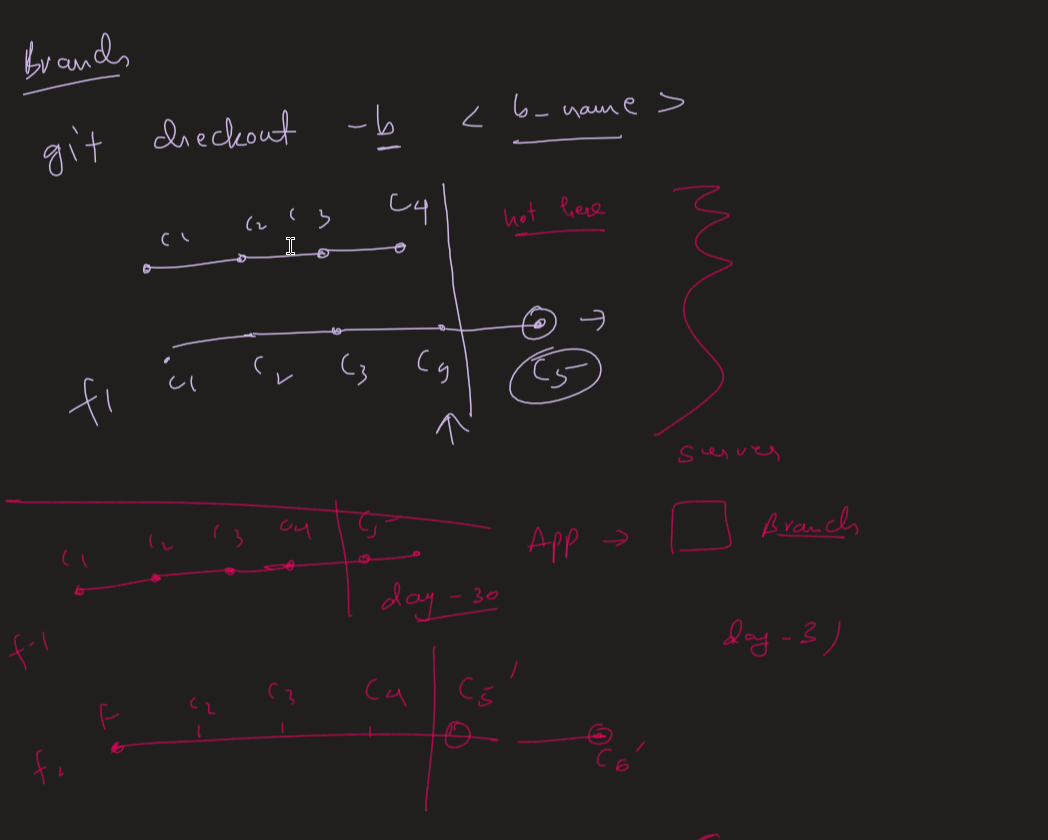 Branch
git checkout -b < b_name >
C1 C2 C3 C4
not here
C1 C2 C3 C4 C5
f1
server
C1 C2 C3 C4 C5
App → Branch
day-30
day-31
f-1
F C2 C3 C4 C5'
C6'